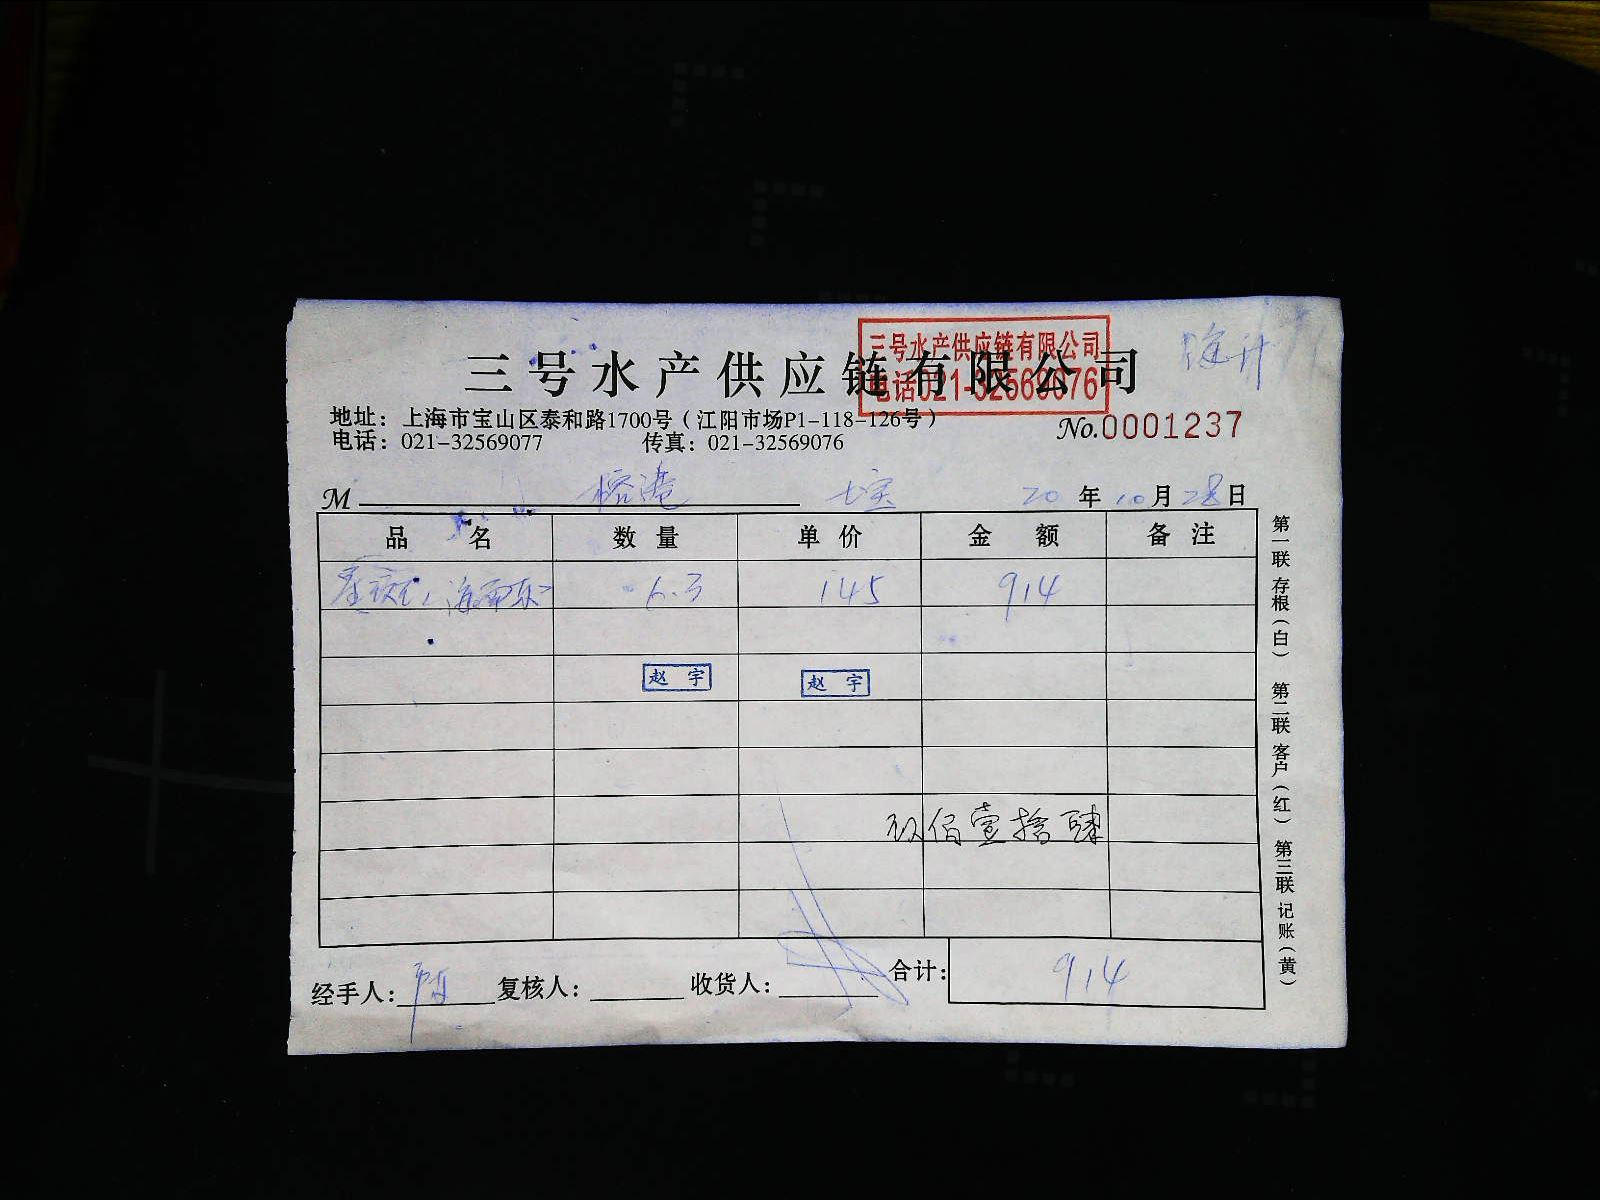 三号水产供应链有限公司
三号水产供应链有限公司
电话021-32569076
地址：上海市宝山区泰和路1700号（江阳市场P1-118-126号）
电话：021-32569077 传真：021-32569076
No.0001237
M 榕港 七宝 20年10月28日
品名 数量 单价 金额 备注
6.3 145 914
赵宇 赵宇
玖佰壹拾肆
经手人： 复核人： 收货人： 合计：914
第一联存根（白） 第二联客户（红） 第三联记账（黄）